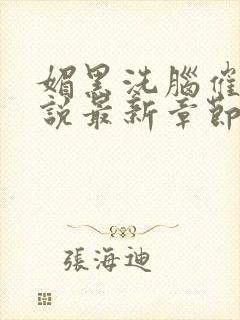 媚黑洗腦催
說最新章節
張海迪